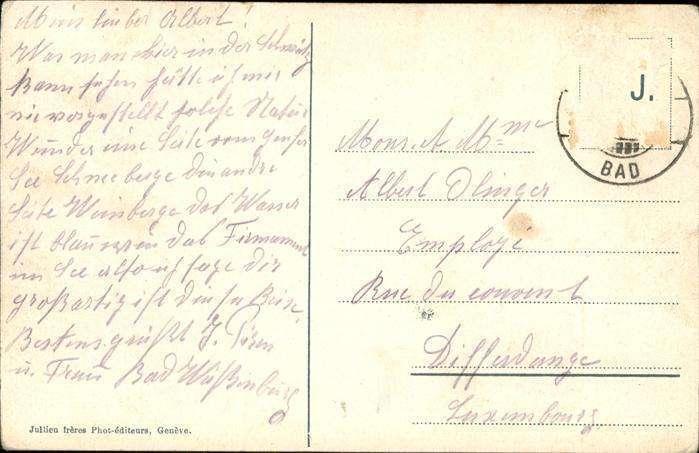 Mein lieber Albert!
Was man hier in der Schweitz
kann sehen hätte ich mir
nie vorgestellt solche Natur
Wunder eine Seite vom genfer
See Schneeberge die andre
Seite Weinberge das Wasser
ist blau wie das Firmament
im See also ich sage dir
großartig ist diese Reise.
Bestens grüßt J.
u. Frau Bad Weißenburg
Jullien frères Phot-éditeurs, Genève.
J.
BAD
Mons. A. Mme
Albert Olinger
Employé
Rue du couvent
Differdange
Luxembourg